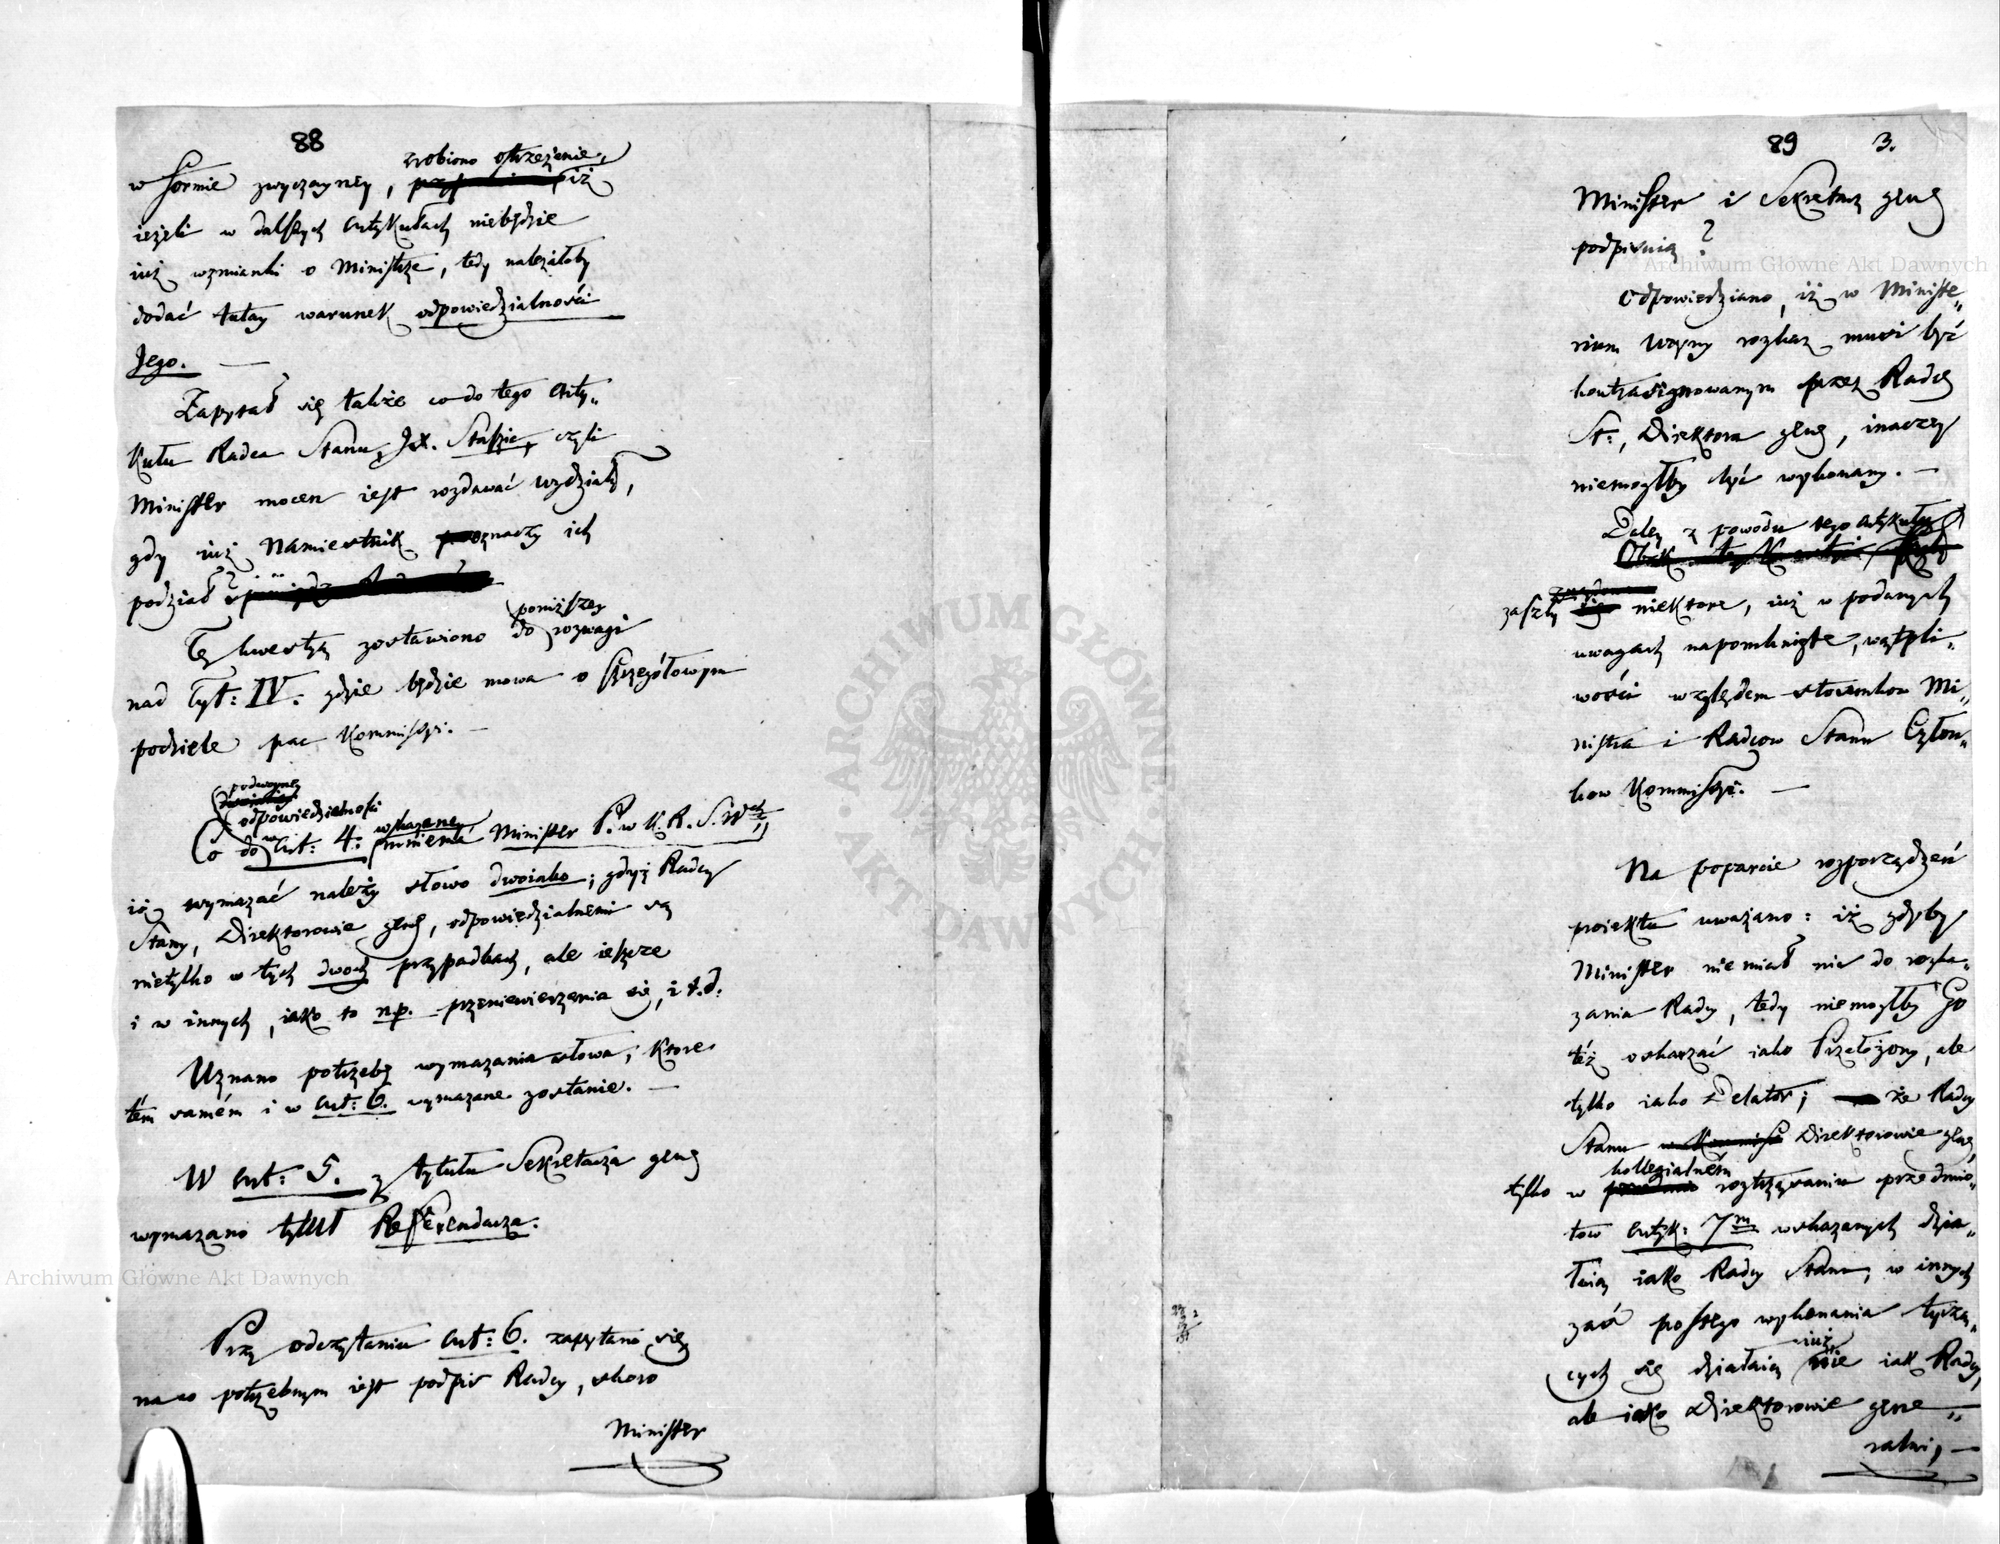 88
zrobiono ostrzeżenie,
w formie zwyczayney, iż
ieżeli w dalszych artykułach niebędzie
iuż wzmianki o Ministrze, tedy należałoby
dodać tutay warunek odpowiedzialności
Jego. —
Zapytał się także co do tego Arty„
kułu Radca Stanu, JX. Staszic, czyli
Minister mocen iest rozdawać wydziały,
gdy iuż Namiestnik oznaczy ich
podział?
poniższey
Tę kwestyą zostawiono do rozwagi
nad Tyt: IV. gdzie będzie mowa o szczegółowym
podziele prac Kommissyi. —
podwóyney
odpowiedzialności
wskazaney
Co do w Art: 4. Minister P. w K. R. S. W
iż wymazać należy słowo dwoiako; gdyż Radcy
Stanu, Direktorowie glni, odpowiedzialnemi są
nietylko w tych dwoch przypadkach, ale ieszcze
i w innych, iako to np. przeniewierzenia się, i t.d.
Uznano potrzebę wymazania słowa; ktore
tém samém i w Art: 6. wymazane zostanie. —
W Art: 5. z tytułu Sekretarza glnego
wymazano tytuł Referendarza.
Przy odczytaniu Art: 6. zapytano się
na co potrzebnym iest podpis Radcy, skoro
Minister
89 3.
Minister i Sekretarz glny
podpisuią?
Odpowiedziano, iż w Ministe„
rium Woyny rozkaz musi być
kontrasignowanym przez Radcę
St:, Direktora glnego, inaczey
niemogłby być wykonany. —
Daley z powodu tego artykułu
zaszły niektore, iuż w podanych
uwagach napomknięte, wątpli„
wości względem stosunkow Mi„
nistra i Radcow Stanu Człon„
kow Kommissyi. —
Na poparcie rozporządzeń
proiektu uważano: iż gdyby
Minister nie miał nic do rozka„
zania Radcy, tedy niemogłby Go
też oskarżać iako Przełożony, ale
tylko iako Delator; że Radcy
Stanu w Kommiss Direktorowie glni,
kollegialném
tylko w roztrząsaniu przedmio„
tow Artyk: 7m wskazanych dzia„
łaią iako Radcy Stanu, w innych
zaś prostego wykonania tyczą„
iuż
cych się działaią nie iak Radcy,
ale iako Direktorowie gene„
ralni, —
Archiwum Główne Akt Dawnych
Archiwum Główne Akt Dawnych
ARCHIWUM GŁÓWNE AKT DAWNYCH